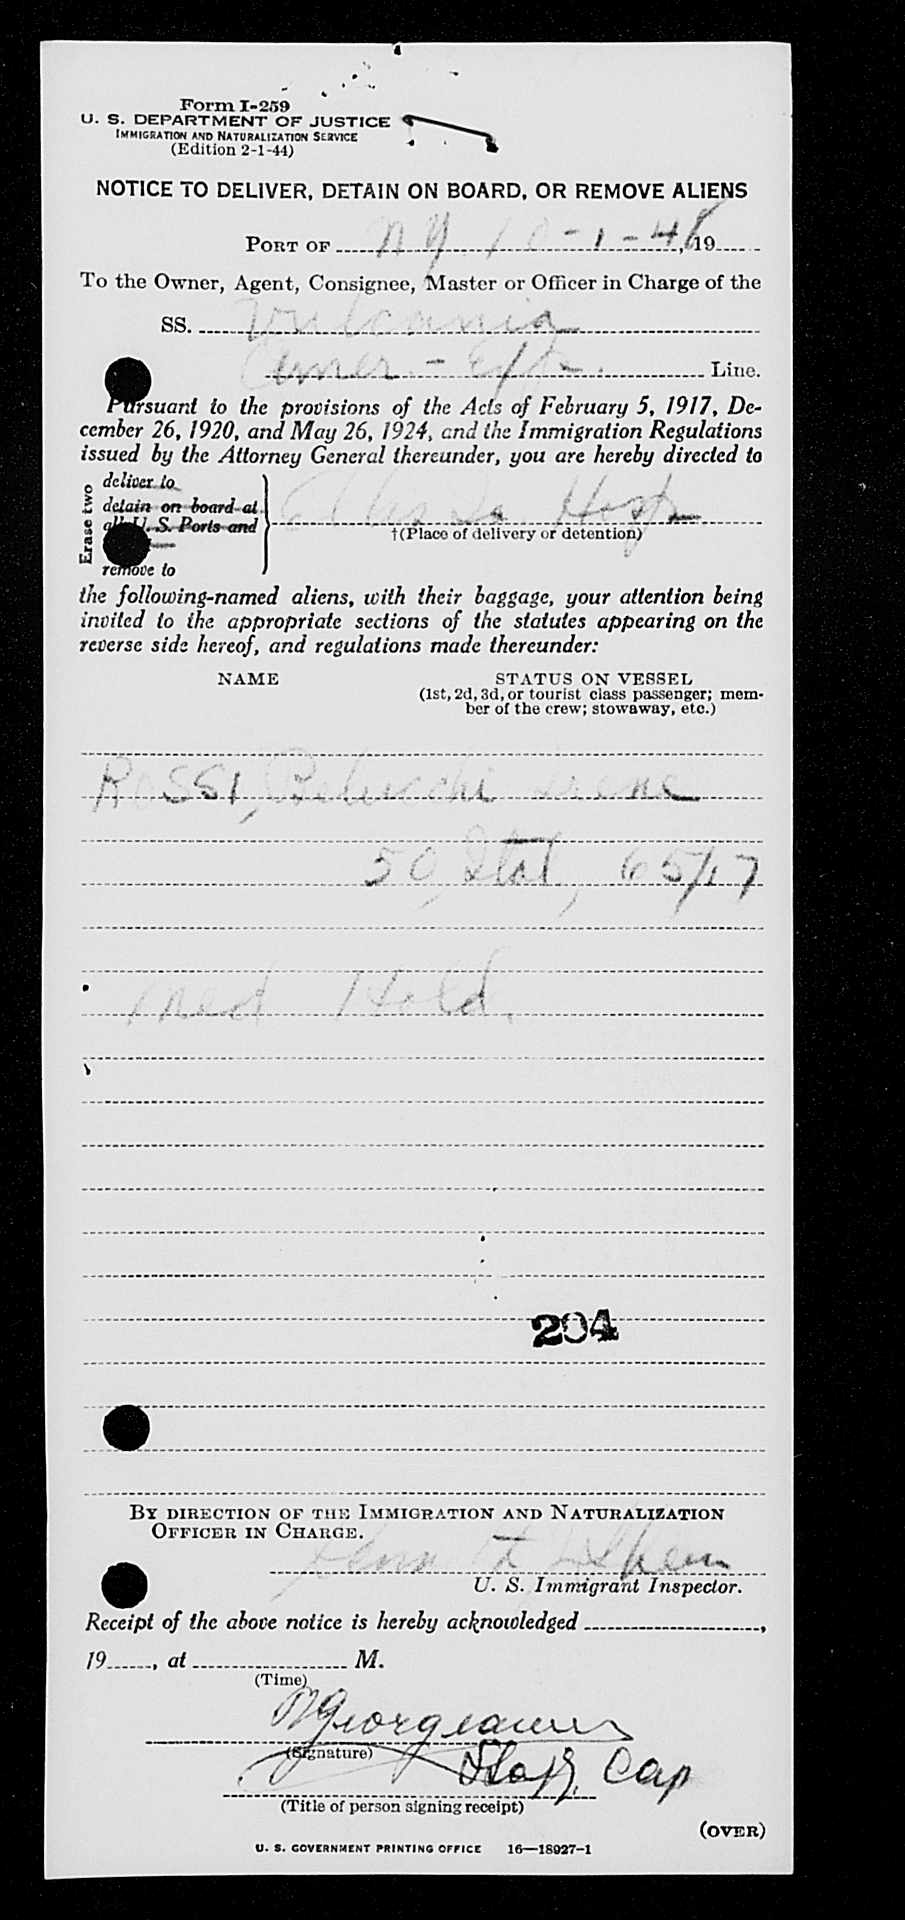 Form I-259
U. S. DEPARTMENT OF JUSTICE
IMMIGRATION AND NATURALIZATION SERVICE
(Edition 2-1-44)
NOTICE TO DELIVER, DETAIN ON BOARD, OR REMOVE ALIENS
PORT OF NY 10-1-48, 19
To the Owner, Agent, Consignee, Master or Officer in Charge of the
SS. Vulcania
Amer. - Exp. Line.
Pursuant to the provisions of the Acts of February 5, 1917, De-
cember 26, 1920, and May 26, 1924, and the Immigration Regulations
issued by the Attorney General thereunder, you are hereby directed to
Erase two
deliver to
detain on board at
all U. S. Ports and
remove to
Ellis Is. Hosp
†(Place of delivery or detention)
the following-named aliens, with their baggage, your attention being
invited to the appropriate sections of the statutes appearing on the
reverse side hereof, and regulations made thereunder:
NAME STATUS ON VESSEL
(1st, 2d, 3d, or tourist class passenger; mem-
ber of the crew; stowaway, etc.)
ROSSI, Belucchi Irene
50, Ital, 65/17
Med Hold.
204
BY DIRECTION OF THE IMMIGRATION AND NATURALIZATION
OFFICER IN CHARGE.
U. S. Immigrant Inspector.
Receipt of the above notice is hereby acknowledged ,
19 , at M.
(Time)
(Signature)
Cap
(Title of person signing receipt)
(OVER)
U. S. GOVERNMENT PRINTING OFFICE 16—18927-1